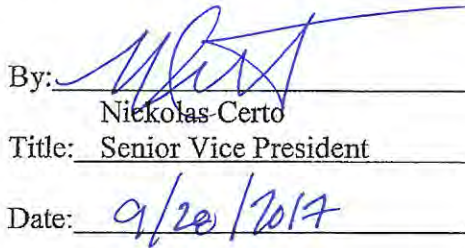 By:
Nickolas Certo
Title: Senior Vice President
Date: 9/28/2017